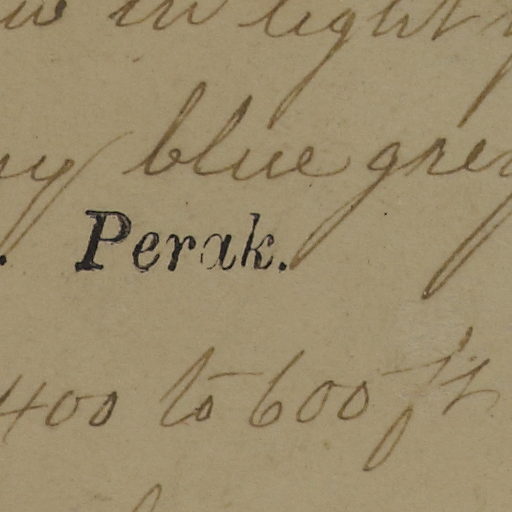 in light
blue grey
. Perak.
400 to 600 ft